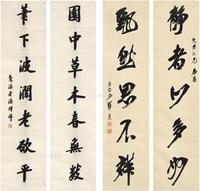 靜者心多妙
飄然思不群
園中草木春無數
筆下波瀾老欲平